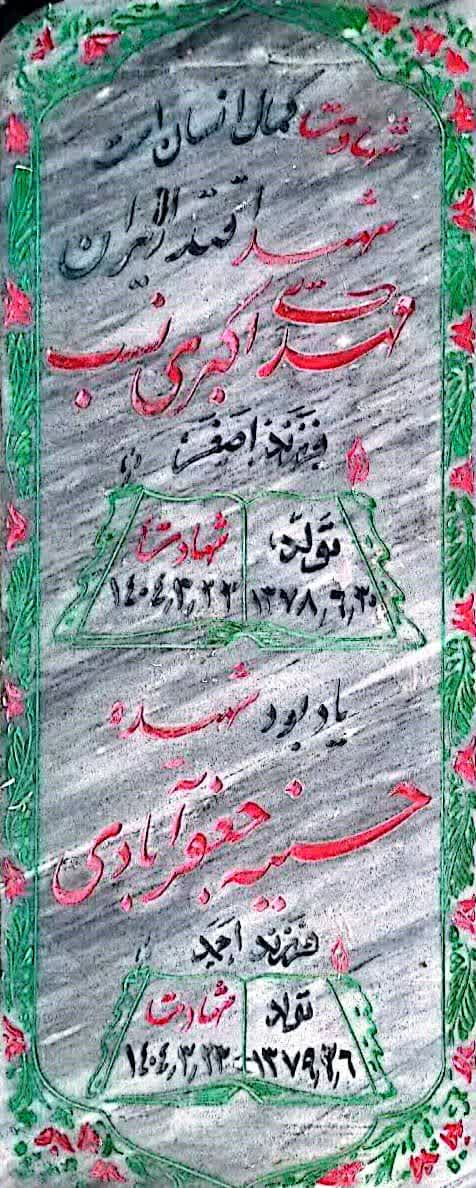 شهادت کمال انسان است
شهید اقتدار ایران
مهدی اکبری نسب
فرزند اصغر
تولد شهادت
۱۳۷۸٫۶٫۲۰ ۱۴۰۴٫۳٫۲۳
یادبود شهیده
حسنیه جعفرآبادی
فرزند احمد
تولد شهادت
۱۳۷۹٫۳٫۶ ۱۴۰۴٫۳٫۲۳